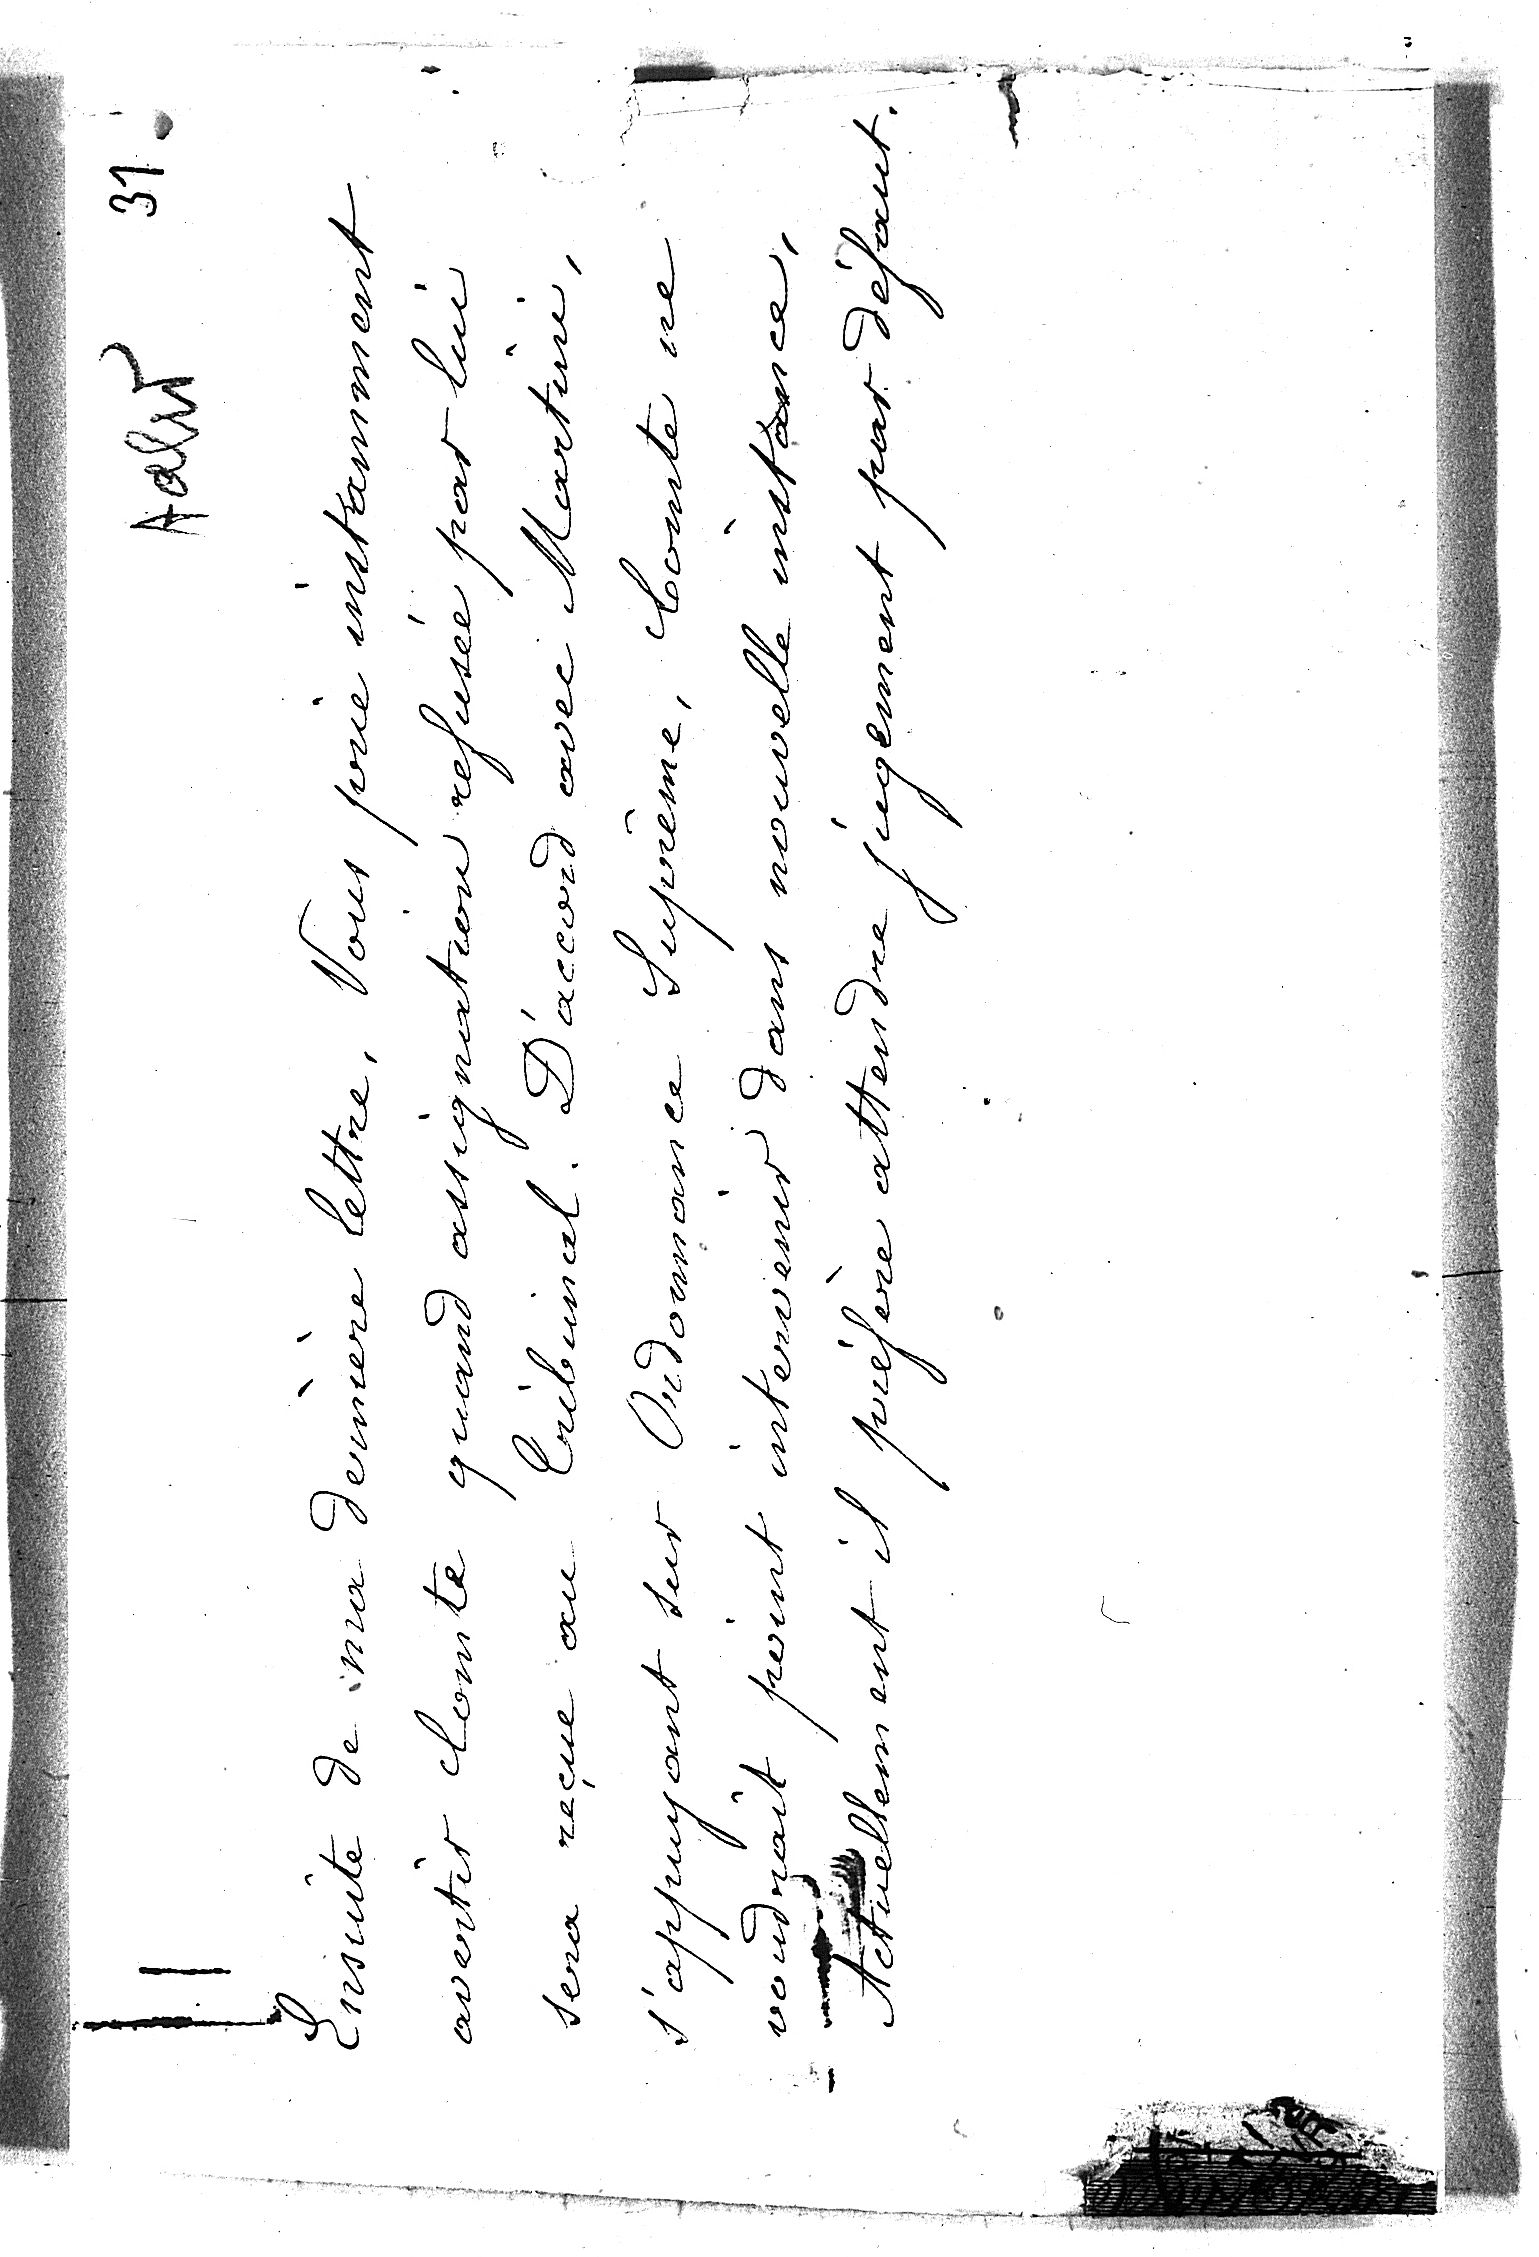 31.
Ensuite de ma dernière lettre, Vous prie instamment
avertir Comte quand assignation refusée par lui
sera reçue au Tribunal. D'accord avec Martini,
s'appuyant sur Ordonnance Suprème, Comte ne
voudrait point intervenir dans nouvelle instance,
Actuellement il préfère attendre jugement par défaut.